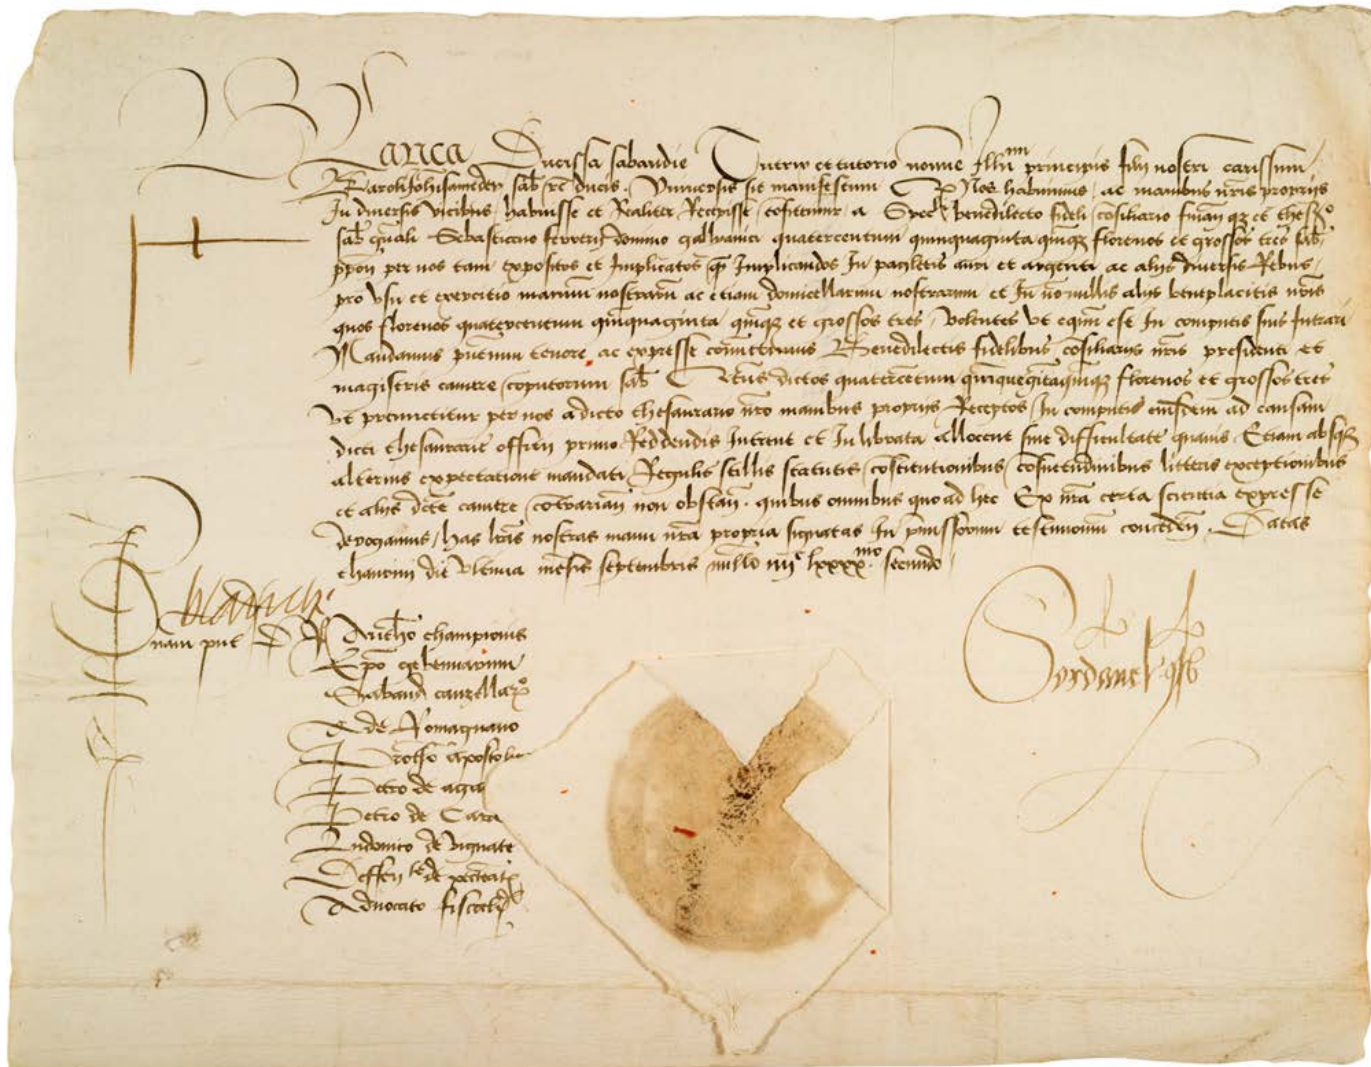 Blanca Ducissa sabaudie Tutrix et tutorio nomine Illmi principis filii nostri carissimi
Karoli Johis amedei sab̄ rc̄ ducis. Universis sit manifestum Q nos habuimus, ac manibus nr̄is proprijs
In diversis vicibus, habuisse et Realiter Recepisse, cōfitemur, a Spect benedilecto fideli cōsiliario finan qz et thesro
sab̄ gnali Sebastiano ferrerij domino gallianici quatercentum quinquaginta quinqz florenos et grossos tres sab̄
ppon per nos tam expositos et Implicatos q̄ Implicandos In pacyletis auri et argenti ac alijs diversis Rebus,
pro usu et exercitio manuū nostrarū ac etiam domicellarum nostrarum et In nōnullis alijs beneplacitis nr̄is
quos florenos quatercentum quinquaginta quinqz et grossos tres, volentes ut equm est In computis suis Intrari
Mandamus pntium tenore, ac expresse comittimus Benedilectis fidelibus cōsiliarijs nr̄is presidenti et
magistris camere cōputorum sab̄ Qtenus dictos quatercētum quinquegītaquinqz florenos et grossos tres
ut premictitur per nos a dicto thesaurario nr̄o manibus proprijs Receptos, In computis eiusdem ad causam
dicti thesaurarie officij primo Reddendis Intrent et In librata allocent sine difficultate quavis. Etiam absqz
alterius expectatione mandati, Regulis stillis statutis, cōstitutionibus, cōsuetudinibus litteris exceptionibus
et alijs dicte camere, cōtrarian̄ non obstan̄. quibus omnibus quo ad hec Ex nr̄a certa scientia expresse
derogamus, has lr̄as nostras manu nr̄a propria signatas In pmissorum testimonium conceden̄. Datas
thaurini die ultima mēsis septembris millo iiijc lxxxxmo secundo
blanche
R Anthō championis
Epō gebennarum
Sabaud canzellaro
A de Romagnano
Petro de
Petro de Cara
Ludovico de vignate
Advocato fiscali